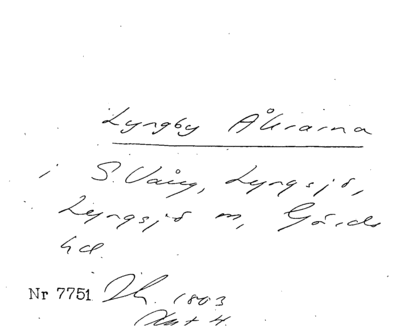 Lyngby Åkrarna
i S. Vång, Lyngsjö,
Lyngsjö sn, Gärds
hd.
Nr 7751 1803